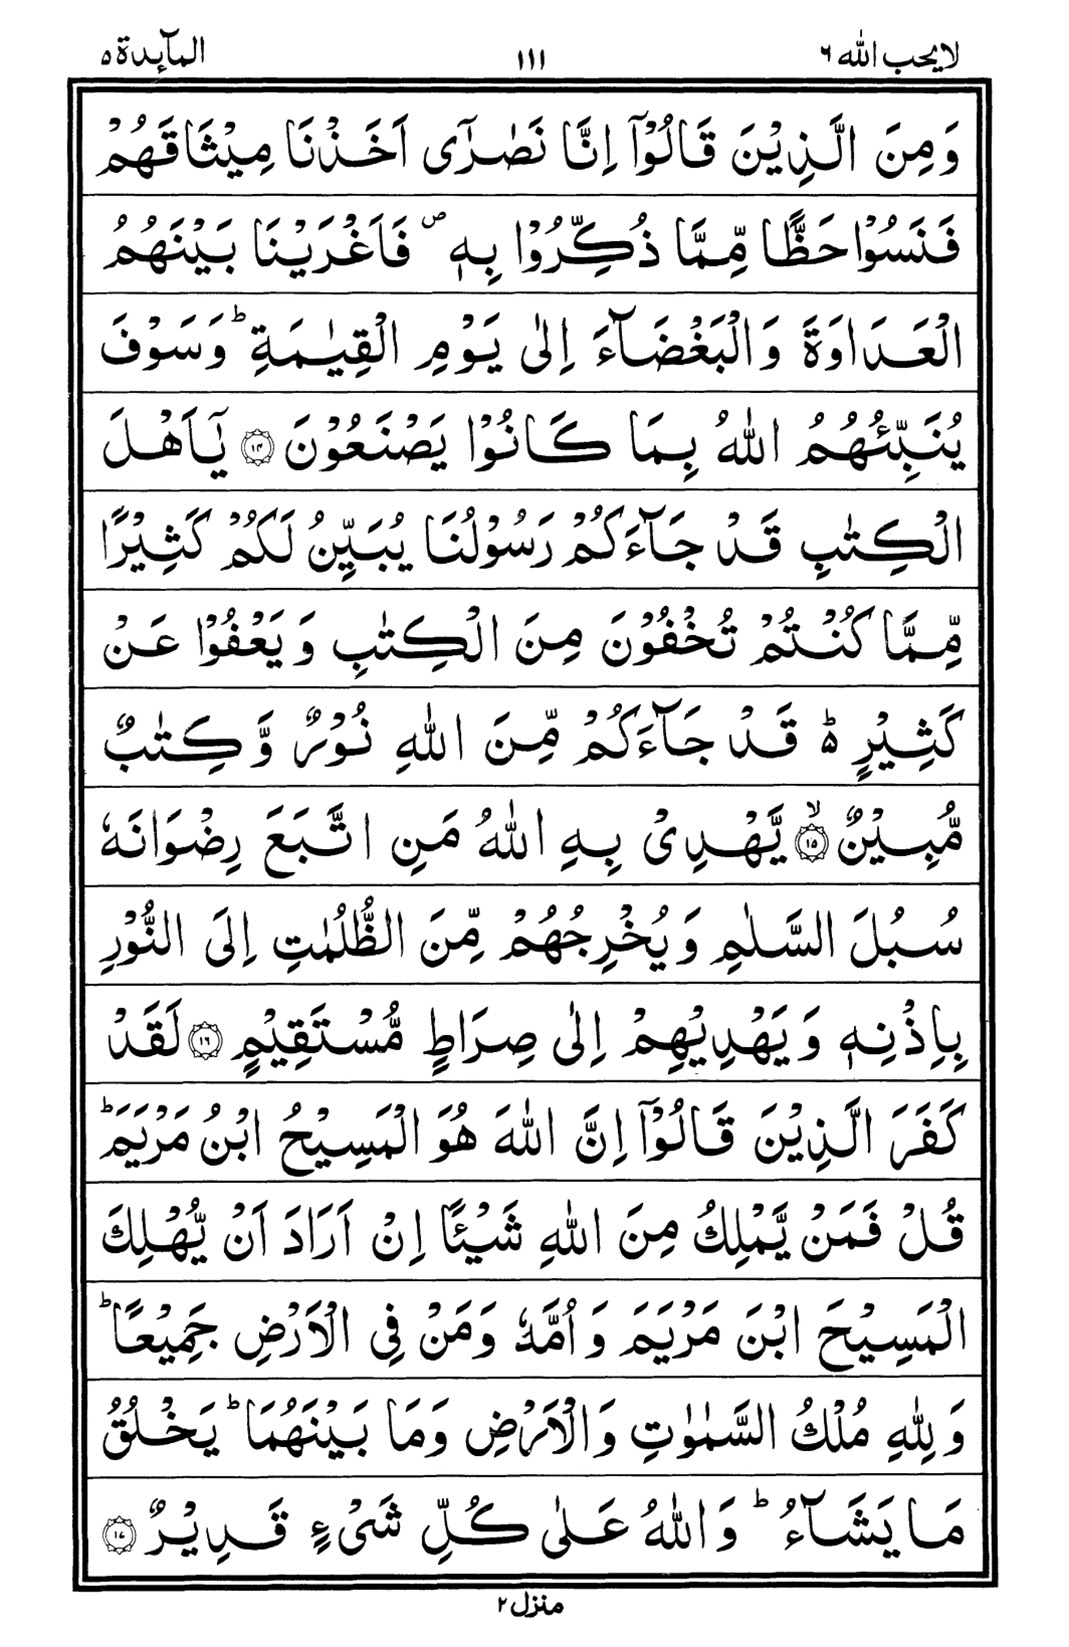 لا یحب الله ٦
١١١
المآىِٕدة ٥
وَ مِنَ الَّذِیْنَ قَالُوْۤا اِنَّا نَصٰرٰۤی اَخَذْنَا مِیْثَاقَهُمْ
فَنَسُوْا حَظًّا مِّمَّا ذُكِّرُوْا بِهٖ ۪ فَاَغْرَیْنَا بَیْنَهُمُ
الْعَدَاوَةَ وَ الْبَغْضَآءَ اِلٰی یَوْمِ الْقِیٰمَةِ ؕ وَ سَوْفَ
یُنَبِّئُهُمُ اللّٰهُ بِمَا كَانُوْا یَصْنَعُوْنَ ۝۱۴ یٰۤاَهْلَ
الْكِتٰبِ قَدْ جَآءَكُمْ رَسُوْلُنَا یُبَیِّنُ لَكُمْ كَثِیْرًا
مِّمَّا كُنْتُمْ تُخْفُوْنَ مِنَ الْكِتٰبِ وَ یَعْفُوْا عَنْ
كَثِیْرٍ ؕ۬ قَدْ جَآءَكُمْ مِّنَ اللّٰهِ نُوْرٌ وَّ كِتٰبٌ
مُّبِیْنٌ ۝۱۵ۙ یَّهْدِیْ بِهِ اللّٰهُ مَنِ اتَّبَعَ رِضْوَانَهٗ
سُبُلَ السَّلٰمِ وَ یُخْرِجُهُمْ مِّنَ الظُّلُمٰتِ اِلَی النُّوْرِ
بِاِذْنِهٖ وَ یَهْدِیْهِمْ اِلٰی صِرَاطٍ مُّسْتَقِیْمٍ ۝۱۶ لَقَدْ
كَفَرَ الَّذِیْنَ قَالُوْۤا اِنَّ اللّٰهَ هُوَ الْمَسِیْحُ ابْنُ مَرْیَمَ ؕ
قُلْ فَمَنْ یَّمْلِكُ مِنَ اللّٰهِ شَیْـًٔا اِنْ اَرَادَ اَنْ یُّهْلِكَ
الْمَسِیْحَ ابْنَ مَرْیَمَ وَ اُمَّهٗ وَ مَنْ فِی الْاَرْضِ جَمِیْعًا ؕ
وَ لِلّٰهِ مُلْكُ السَّمٰوٰتِ وَ الْاَرْضِ وَ مَا بَیْنَهُمَا ؕ یَخْلُقُ
مَا یَشَآءُ ؕ وَ اللّٰهُ عَلٰی كُلِّ شَیْءٍ قَدِیْرٌ ۝۱۷
منزل ٢